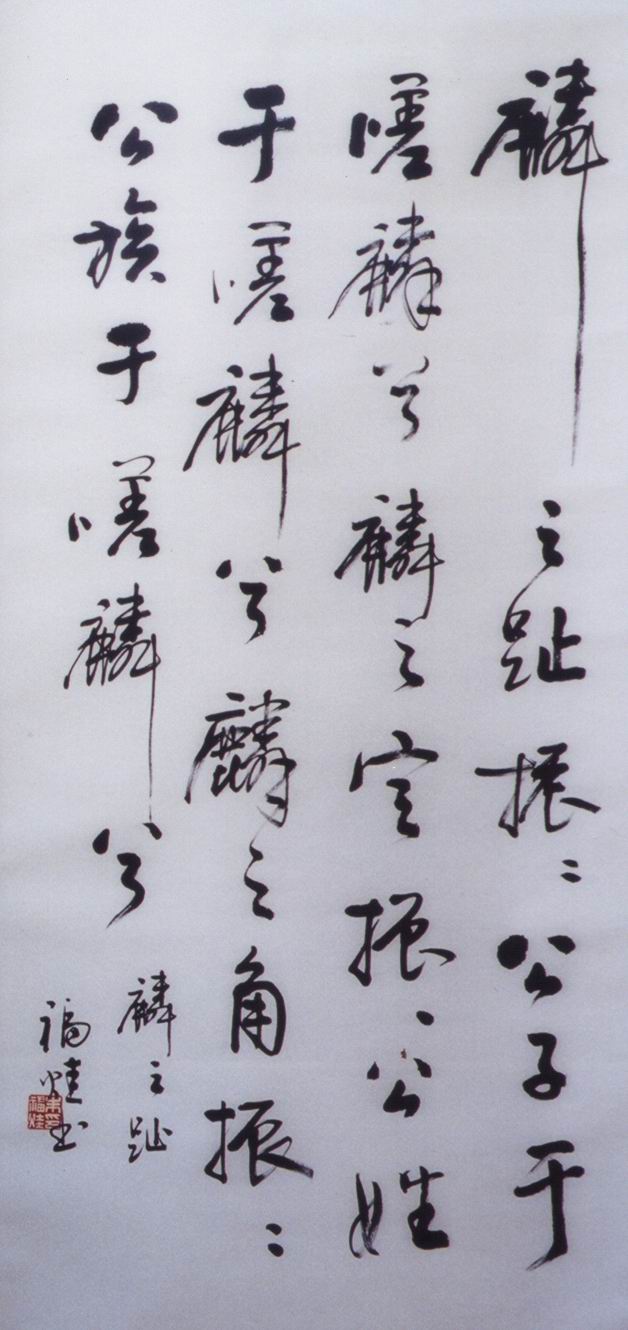 麟之趾振〻公子于
嗟麟兮麟之定振〻公姓
于嗟麟兮麟之角振〻
公族于嗟麟兮
麟之趾
福烓书